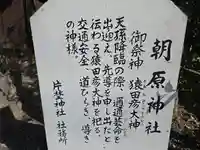 朝原神社
御祭神 猿田彦大神
天孫降臨の際、邇邇芸命を
出迎え、先導を申し出た…と
伝わる猿田彦大神を祀る。
交通安全、道ひらき、導き
の神様。
片埜神社 社務所